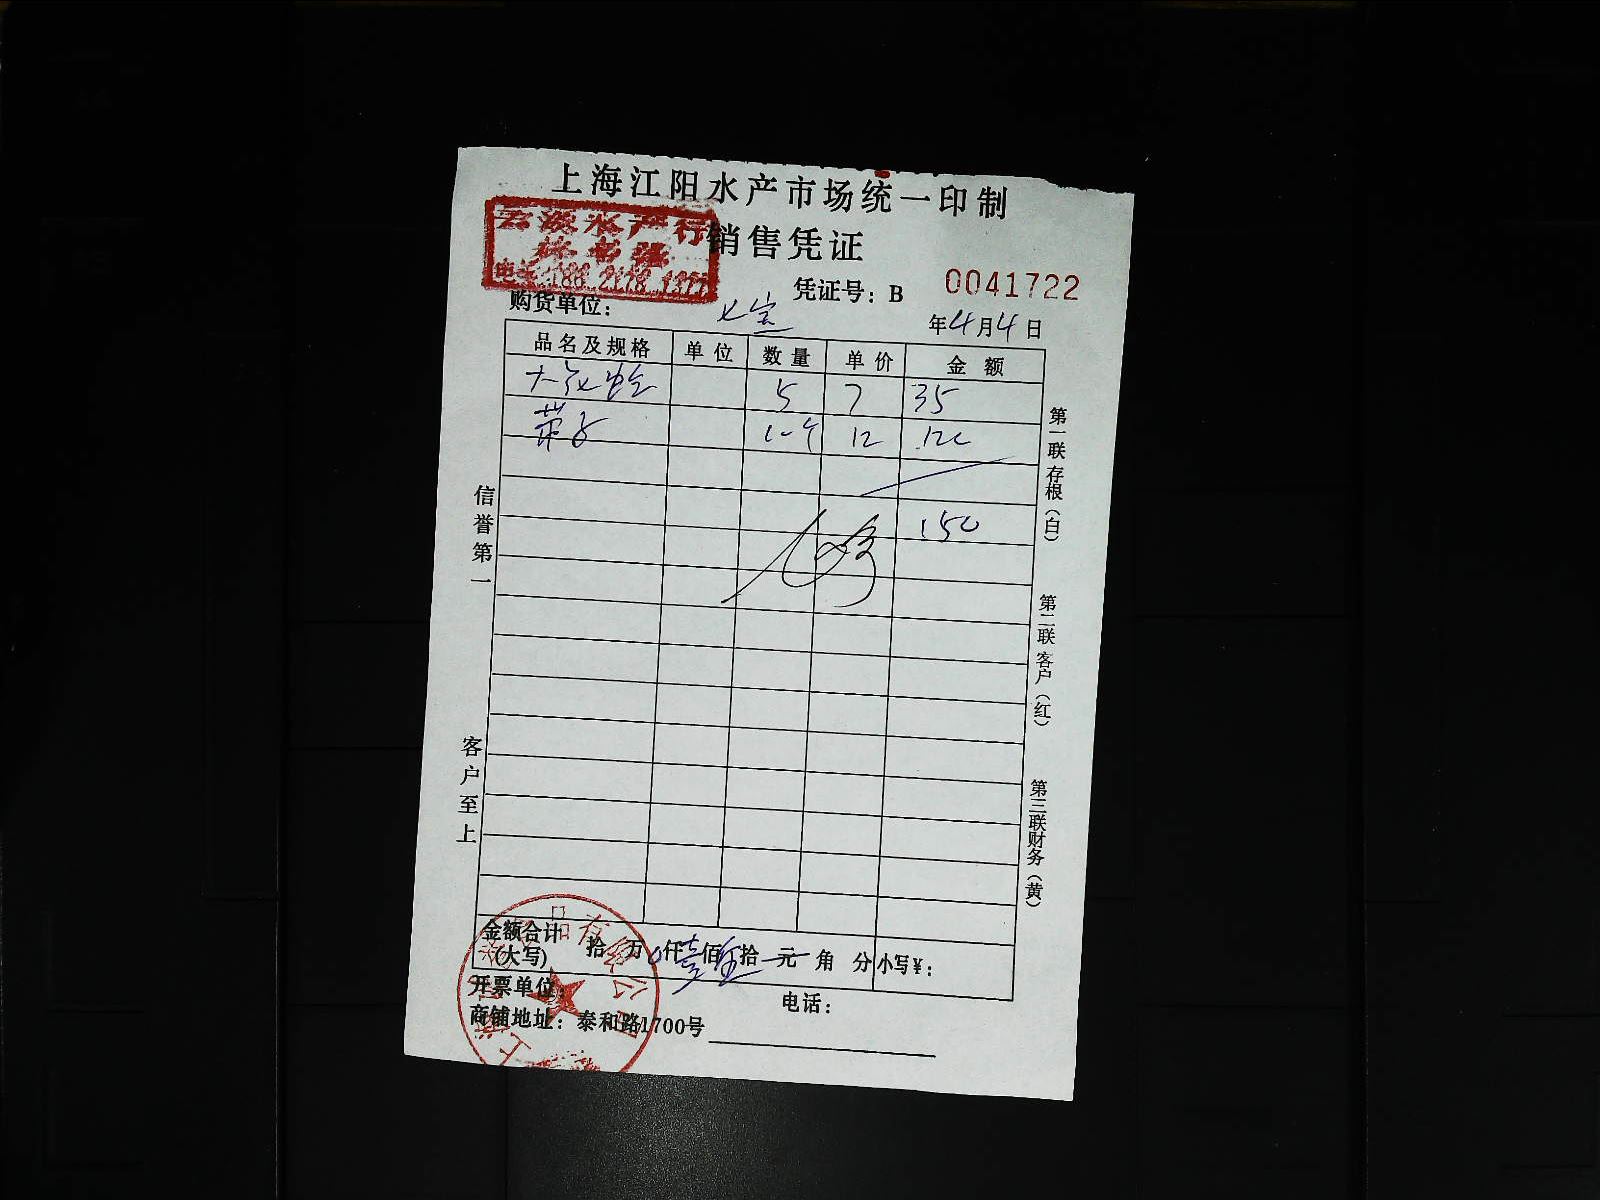 上海江阳水产市场统一印制
水产行
电话:188 2178 1377
销售凭证
凭证号：B 0041722
购货单位： 七宝
年4月4日
品名及规格 单位 数量 单价 金额
5 7 35
带子 12 120
150
信誉第一
客户至上
第一联 存根（白）
第二联 客户（红）
第三联 财务（黄）
金额合计 拾 万 仟 壹 佰 拾 元 角 分 小写¥：
(大写)
开票单位： 电话：
商铺地址：泰和路1700号